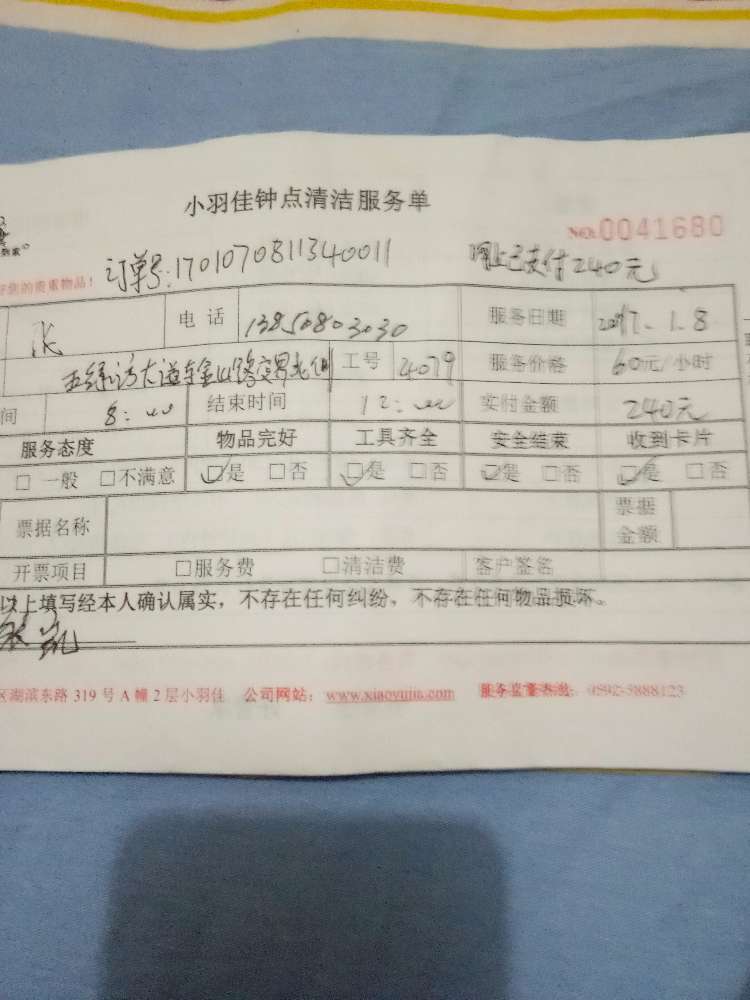 小羽佳钟点清洁服务单
№:0041680
订单号:1701070811340011 网上已支付240元
的贵重物品!
张 电 话 13850803030 服务日期 2017.1.8
五缘湾大道与金山路交界 工号 4079 服务价格 60元/小时
间 8:00 结束时间 12:00 实付金额 240元
服务态度 物品完好 工具齐全 安全结束 收到卡片
□ 一般 □不满意 ☑是 □否 ☑是 □否 ☑是 □否 ☑是 □否
票据名称 票据金额
开票项目 □服务费 □清洁费 客户签名
以上填写经本人确认属实,不存在任何纠纷,不存在任何物品损坏。
张凯
区湖滨东路 319 号 A 幢 2 层小羽佳 公司网站: www.xiaoyujia.com 服务监督热线: 0592-5888123